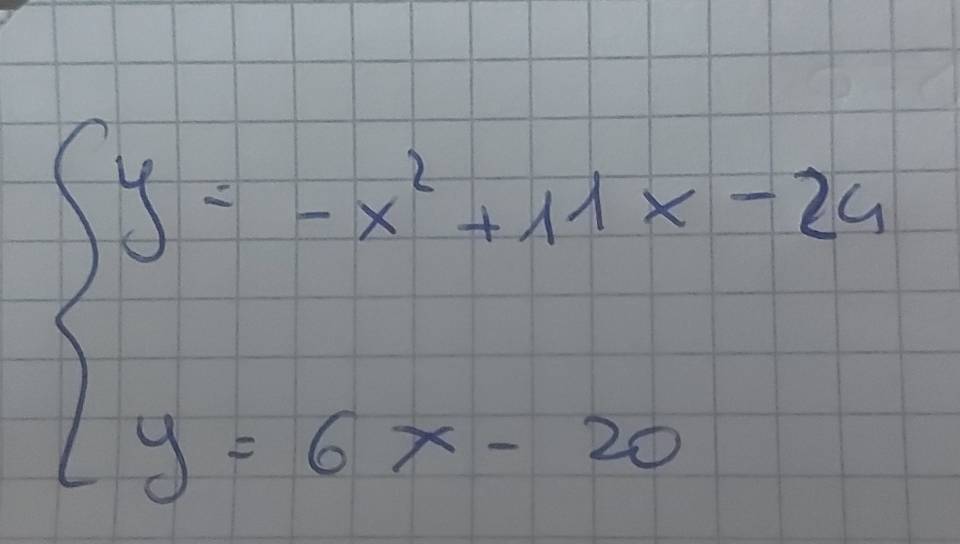 y = -x² + 11x - 24
y = 6x - 20